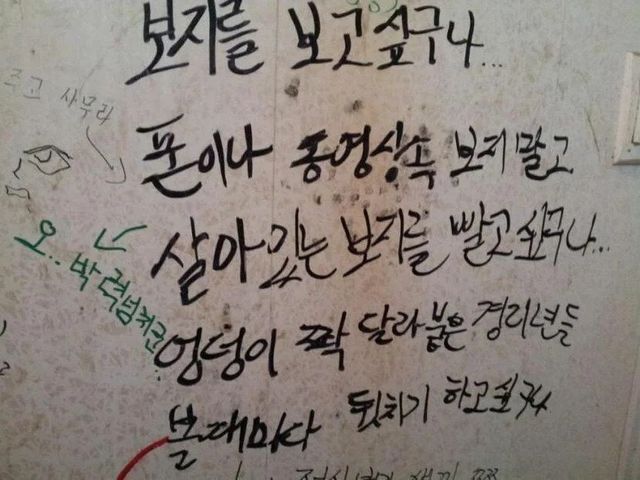 보지를 보고싶구나...
주고 사무리
폰이나 동영상속 보지말고
살아있는 보지를 빨고싶구나...
오.. 박력넘치군
엉덩이 짝 달라붙은 경리년들
볼때마다 뒷치기 하고싶구나